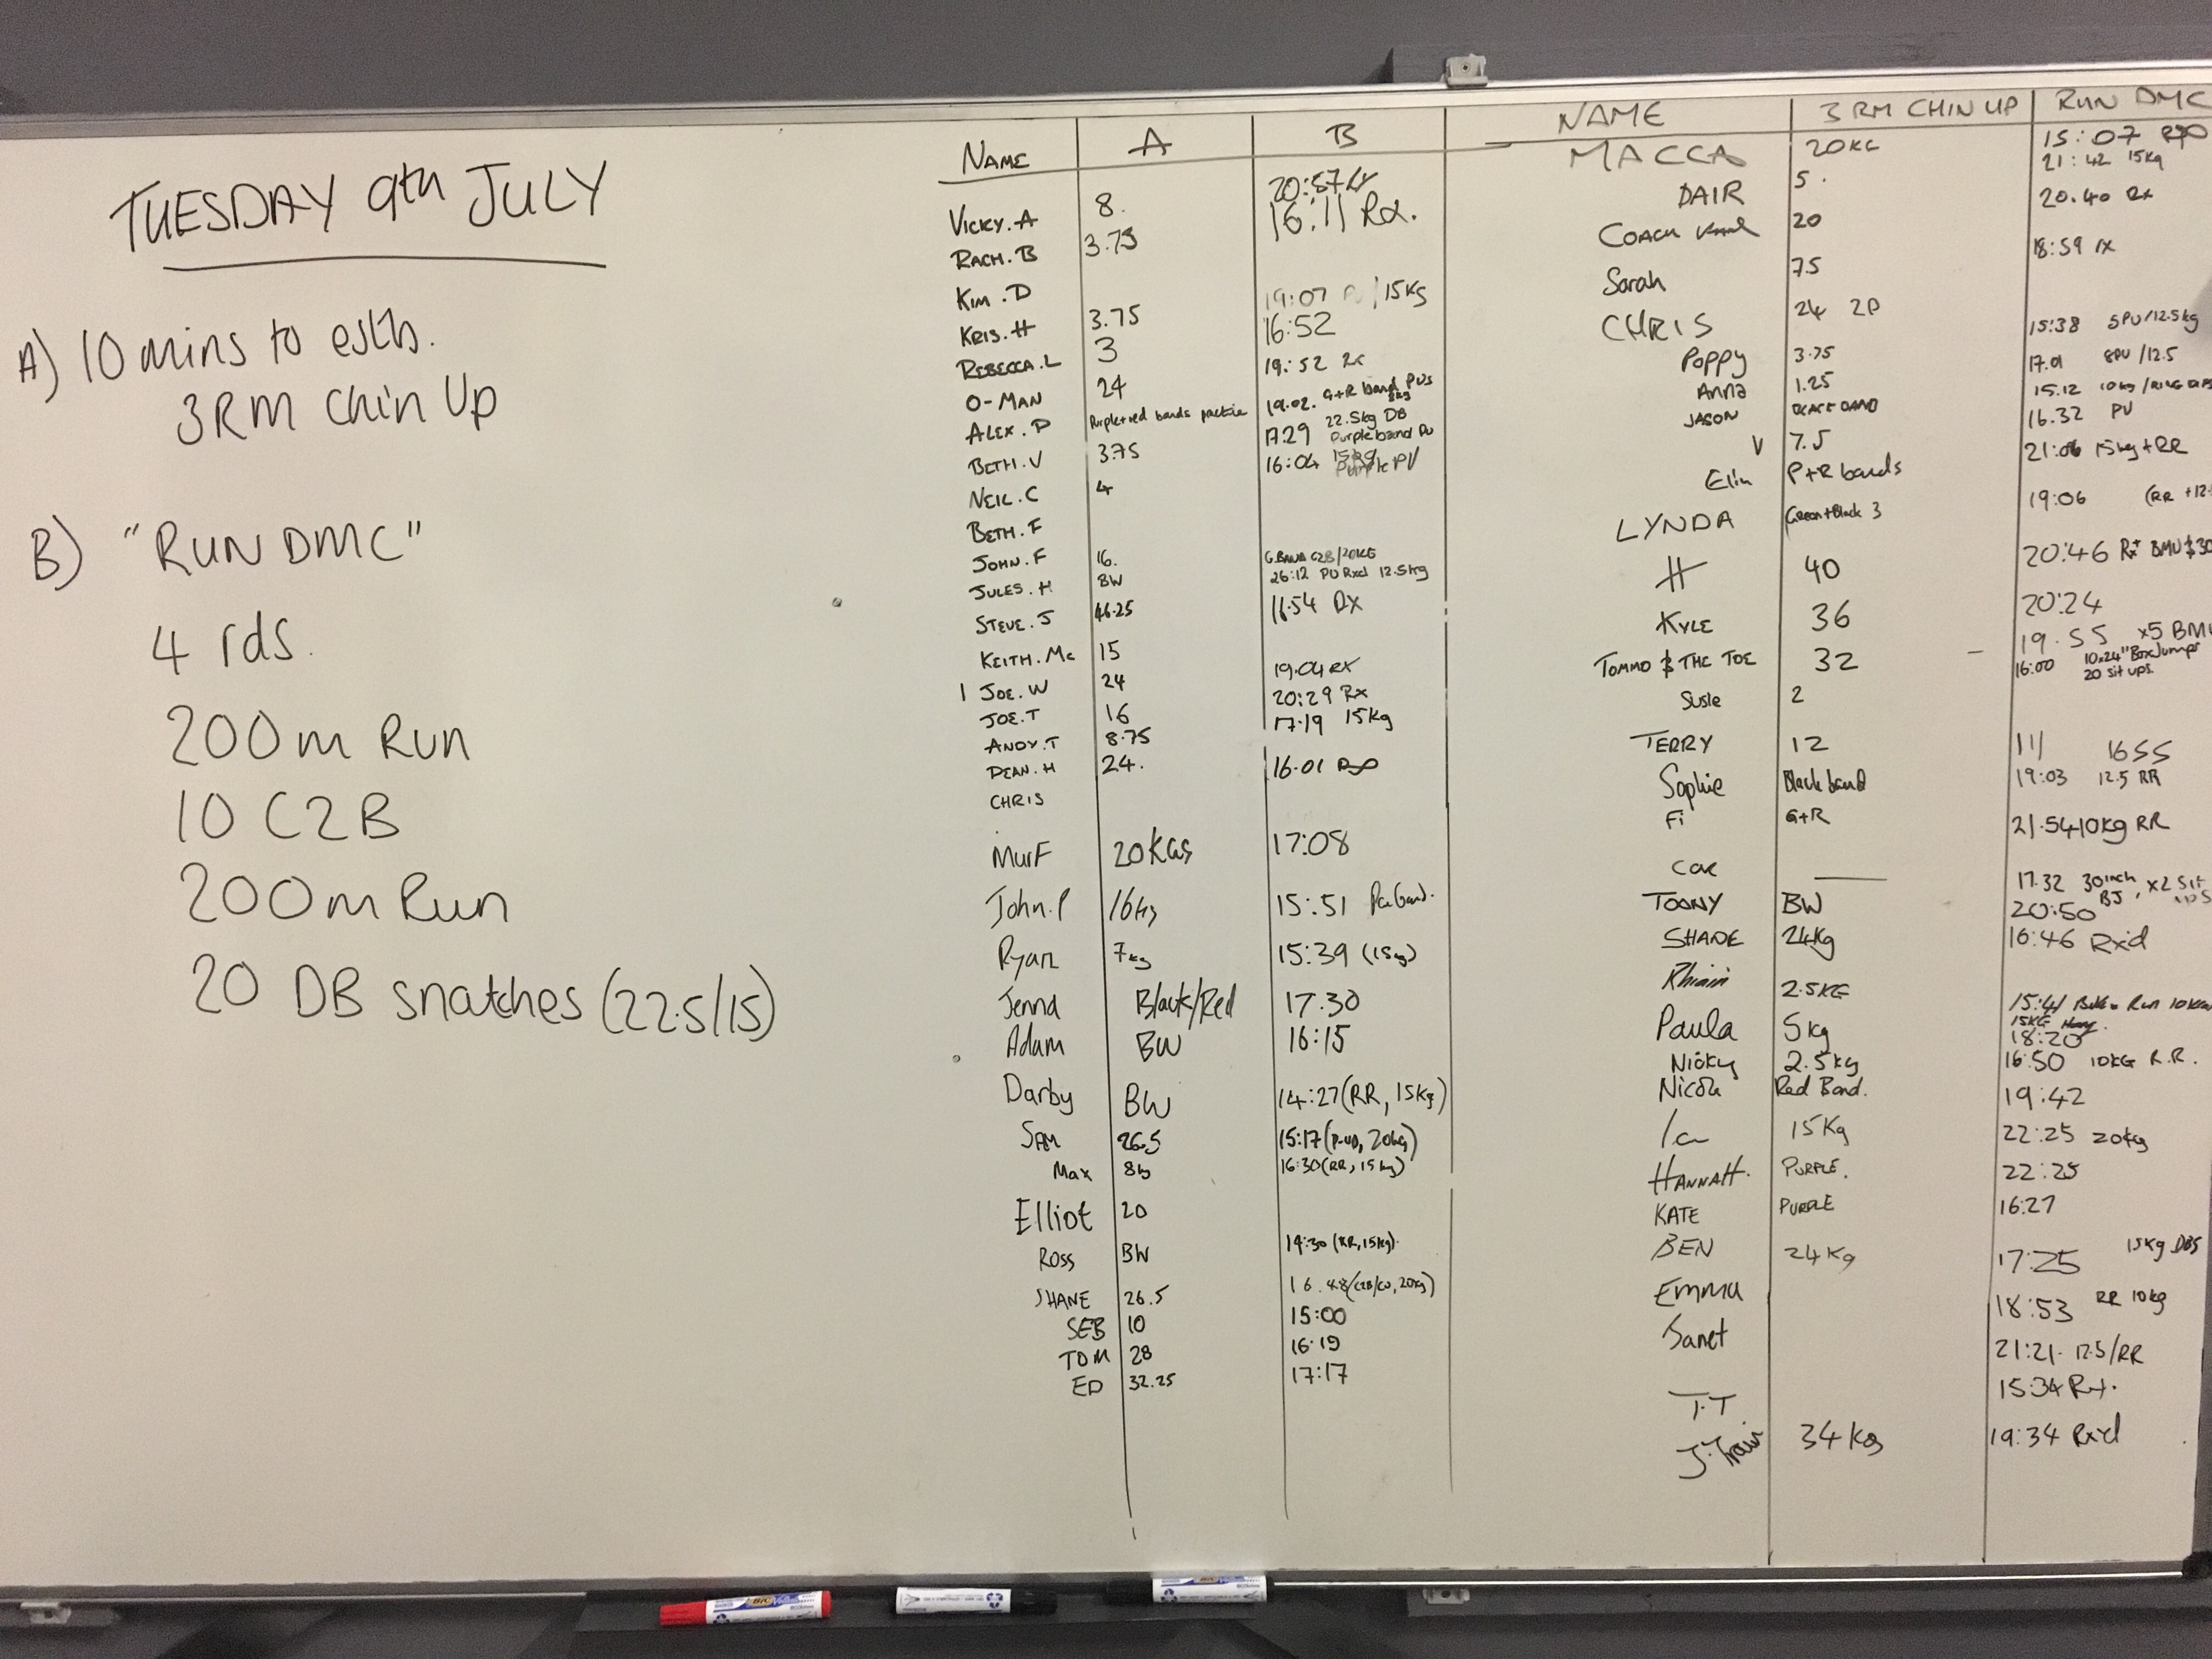 TUESDAY 9th JULY
A) 10 mins to estb.
3RM Chin Up
B) "RUN DMC"
4 rds.
200m Run
10 C2B
200m Run
20 DB snatches (22.5/15)
NAME A B
VICKY.A 8. 20:57
RACH.B 3.75 16.11 Rx.
KIM.D
KRIS.H 3.75 19:07 15KG
REBECCA.L 3 16:52
O-MAN 24 19:52 Rx
ALEX.P Purple+red bands practice 19.02. G+R band PUs
BETH.V 3.75 17.29 22.5kg DB Purple band PU
NEIL.C 4 16:04 15kg Purple PU
BETH.F
JOHN.F 16. G.BAND C2B/20KG
JULES.H BW 26:12 PU Rxd 12.5kg
STEVE.J 46.25 16.54 RX
KEITH.Mc 15
1 JOE.W 24 19.04 RX
JOE.T 16 20:29 Rx
ANDY.T 8.75 17.19 15kg
DEAN.H 24. 16.01
CHRIS
Murf 20KGS 17:08
John.P 16kg 15:51
Ryan 7kg 15:39 (15kg)
Jenna Black/Red 17.30
Adam BW 16:15
Darby BW 14:27 (RR, 15kg)
SAM 26.5 15:17 (P-UP, 20kg)
Max 8kg 16:30 (RR, 15kg)
Elliot 20
ROSS BW 14:30 (RR, 15kg).
SHANE 26.5 16.48 (C2B/CU, 20kg)
SEB 10 15:00
TOM 28 16:19
ED 32.25 17:17
NAME 3 RM CHIN UP RUN DMC
MACCA 20KG 15:07
DAIR 5. 21:42 15kg
COACH 20 20.40 Rx
Sarah 7.5 18:59 rx
CHRIS 24 2P
Poppy 3.75 15:38 SPU/12.5kg
Anna 1.25 17.01 SPU/12.5
JASON BLACK BAND 15.12 10kg/RING DIPS
V 7.5 16.32 PU
Elin P+R bands 21:06 15kg+RR
LYNDA Green+Black 3 19:06 (RR +12.
H 40 20:46 Rx+ BMU $30
KYLE 36 20:24
TOMMO $ THE TOE 32 19.55 x5 BM
Susie 2 16:00 10x24" Box Jumps 20 sit ups.
TERRY 12 1655
Sophie Black band 19:03 12.5 RR
Fi G+R 21.54 10kg RR
COX 17.32 30inch BJ, x2 Sit
TOONY BW 20:50
SHANE 24kg 16:46 Rxd
2.5KG 15:41 Run 10
15KG
Paula 5kg 18:20
Nicky 2.5kg 16:50 10KG R.R.
Nicola Red Band. 19:42
Ian 15Kg 22:25 20kg
HANNAH. PURPLE. 22:25
KATE PURPLE 16:27
BEN 24Kg 17:25 15kg DBS
EMMA 18:53 RR 10kg
Janet 21:21. 12.5/RR
T.T 15:34 Rx.
J.Train 34kg 19:34 Rxd